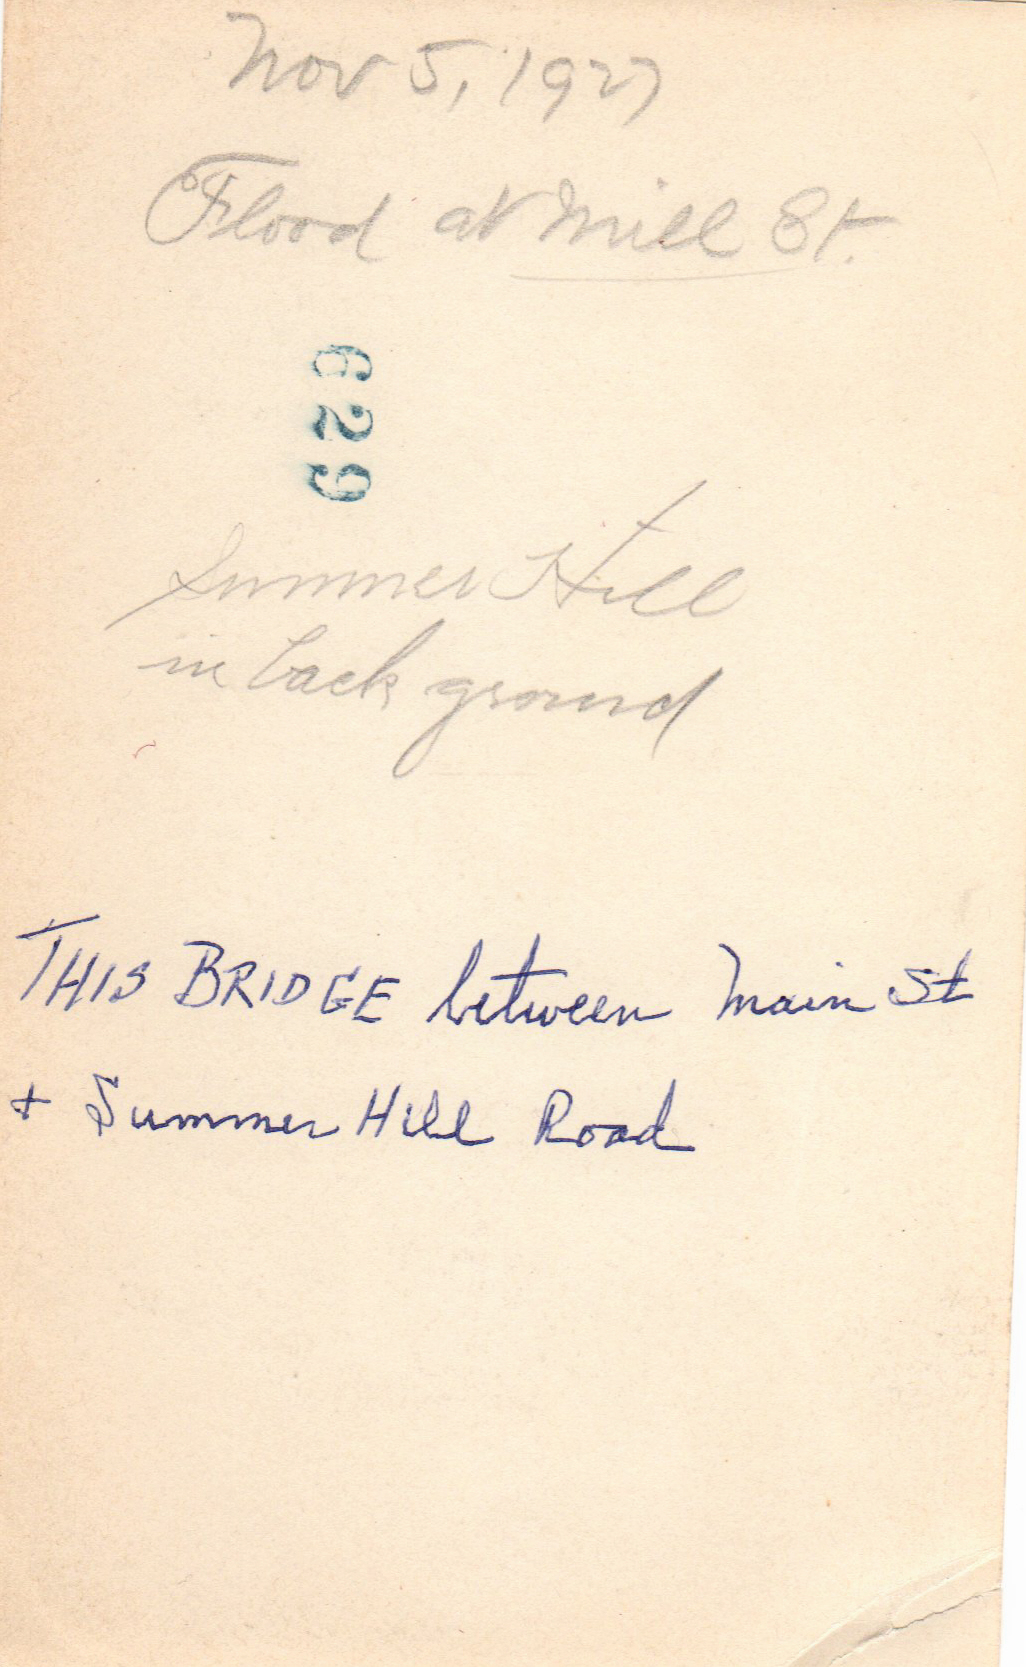 Nov 5, 1927
Flood at Mill St.
629
Summer Hill
in back ground
THIS BRIDGE between Main St
+ Summer Hill Road